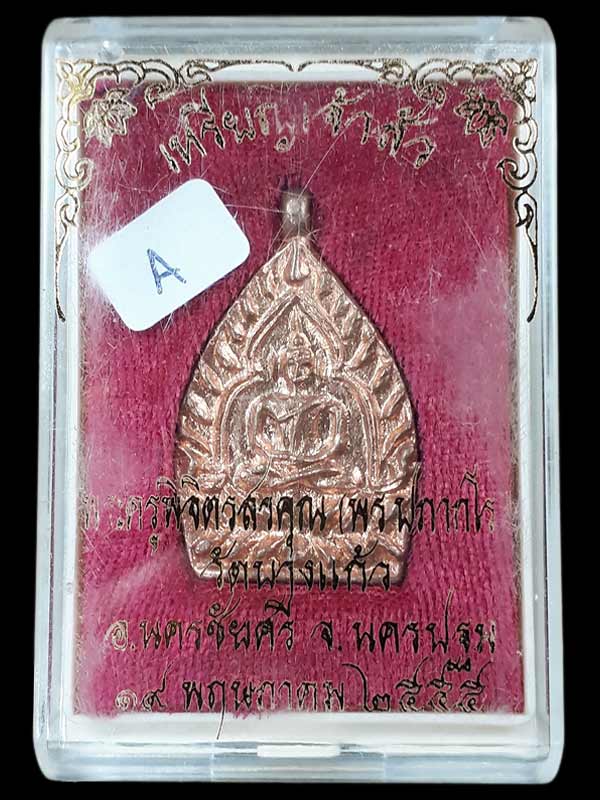 เหรียญเจ้าสัว
A
พระครูพิจิตรสรคุณ (พร ปภากโร
วัดบางแก้ว
อ.นครชัยศรี จ.นครปฐม
๑๙ พฤษภาคม ๒๕๕๕